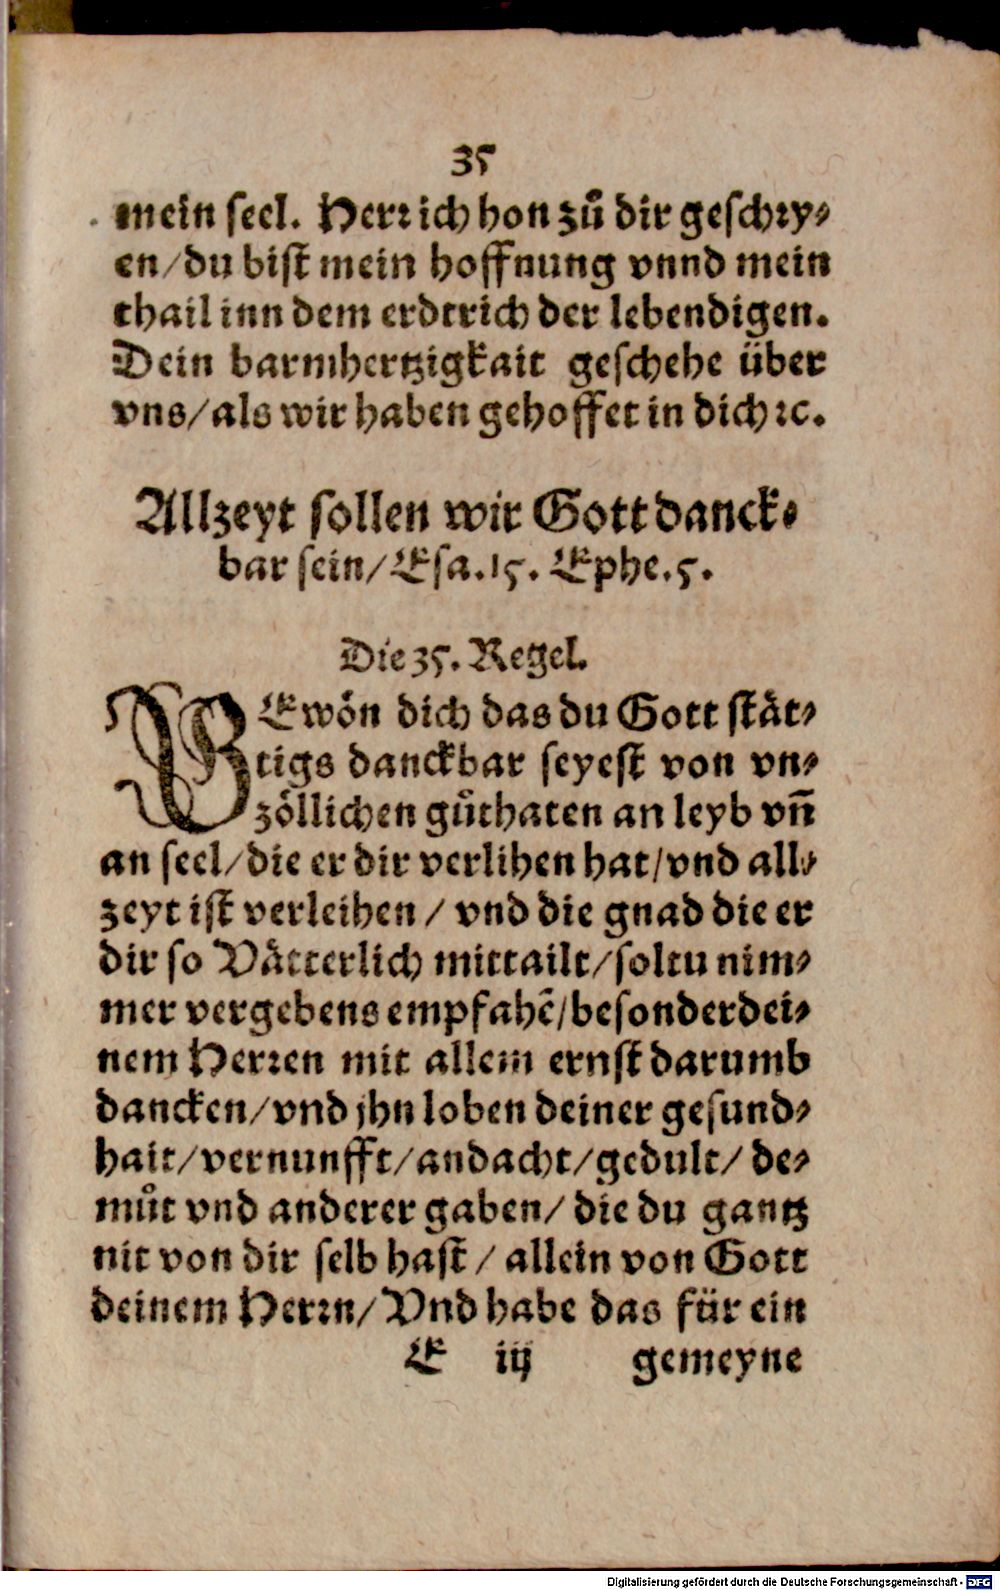 35
mein seel. Herꝛ ich hon zů dir geschꝛy⸗
en/du bist mein hoffnung vnnd mein
thail inn dem erdtrich der lebendigen.
Dein barmhertzigkait geschehe über
vns/als wir haben gehoffet in dich ꝛc.
Allzeyt sollen wir Gott danck⸗
bar sein/Esa.15. Ephe.5.
Die 35. Regel.
GEwoͤn dich das du Gott staͤt⸗
tigs danckbar seyest von vn⸗
zoͤllichen gůthaten an leyb vn̄
an seel/die er dir verlihen hat/vnd all⸗
zeyt ist verleihen/ vnd die gnad die er
dir so Vaͤtterlich mittailt/soltu nim⸗
mer vergebens empfahē/besonder dei⸗
nem Herꝛen mit allem ernst darumb
dancken/vnd jhn loben deiner gesund⸗
hait/vernunfft/andacht/gedult/ de⸗
můt vnd anderer gaben/ die du gantz
nit von dir selb hast/ allein von Gott
deinem Herꝛn/Vnd habe das für ein
E iij gemeyne
Digitalisierung gefördert durch die Deutsche Forschungsgemeinschaft - DFG